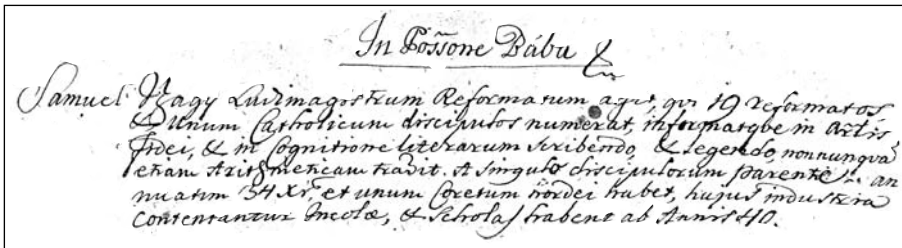 In Possone Bábu
Samuel Nagy Ludimagostrum Reformatum agit, qui 19 reformatos
& unum Catholicum discipulos numerat, informatqve in Artis
fidei, & in Cognitione literarum scribendo, & legendo, nonnunqva
etiam Arithmeticam tradit. A singulis discipulorum parente an
nuatim 34 Xr, et unum Coretum hordei habet, hujus industria
contentantur Incolæ, & Scholas habent ab Annis 40.